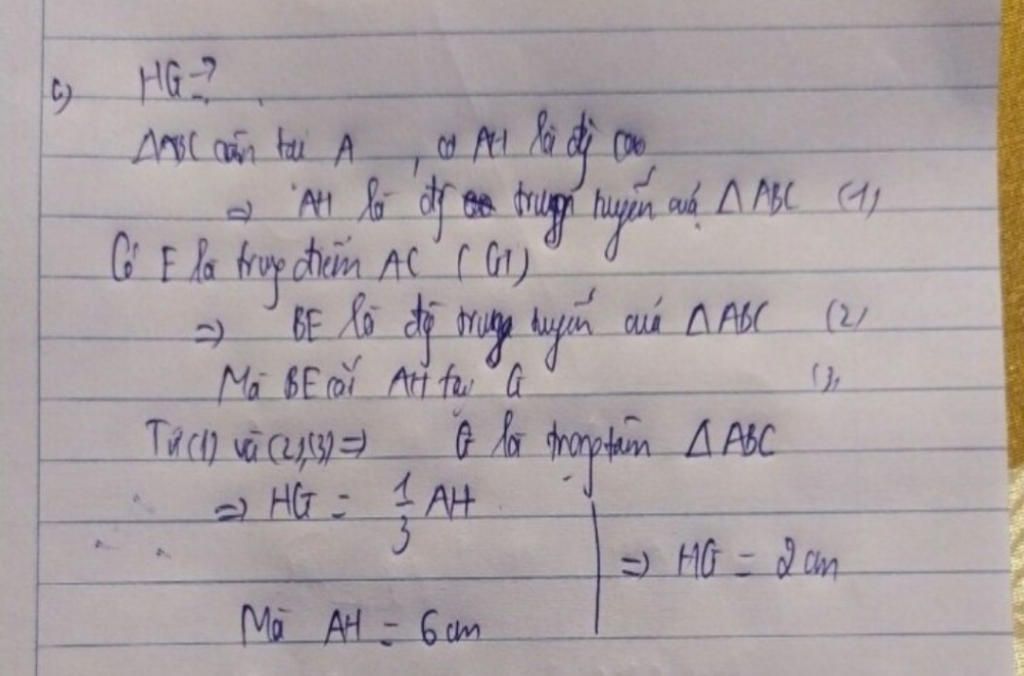 c) HG = ?
ΔABC cân tại A, có AH là đg cao
=> AH là đg trung tuyến của ΔABC (1)
Có E là trung điểm AC (GT)
=> BE là đg trung tuyến của ΔABC (2)
Mà BE cắt AH tại G (3)
Từ (1) và (2), (3) => G là trọng tâm ΔABC
=> HG = 1/3 AH
=> HG = 2 cm
Mà AH = 6 cm